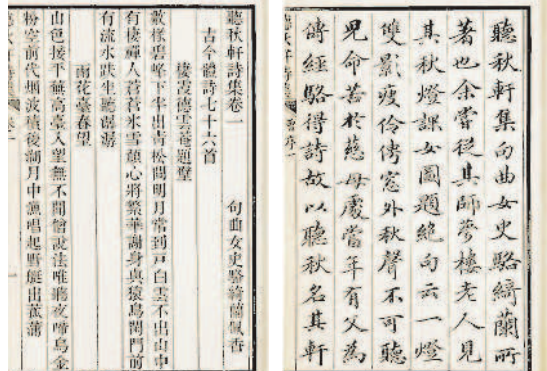 聽秋軒集句曲女史駱綺蘭所
著也余嘗從其師夢樓老人見
其秋燈課女圖題絶句云一燈
雙影瘦伶俜窓外秋聲不可聽
兒命苦於慈母處當年有父為
傳經駱得詩故以聽秋名其軒
聽秋軒詩集卷一
句曲女史駱綺蘭佩香
古今體詩七十六首
棲霞德雲菴題壁
數椽碧峰下半出青松間明月常到戸白雲不出山中
有棲禪人蒼蒼氷雪顏心將繁華謝身與猿鳥閒門前
有流水趺坐聽潺潺
雨花臺春望
山色接平蕪高臺入望無不聞僧說法唯聽夜啼烏金
粉空前代烟波後湖月中漁唱起野艇出菰蒲